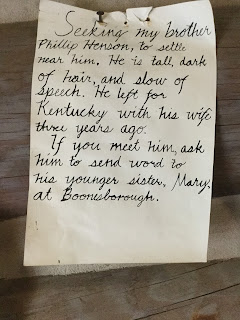 Seeking my brother
Phillip Henson, to settle
near him. He is tall, dark
of hair, and slow of
speech. He left for
Kentucky with his wife
three years ago.
If you meet him, ask
him to send word to
his younger sister, Mary,
at Boonesborough.